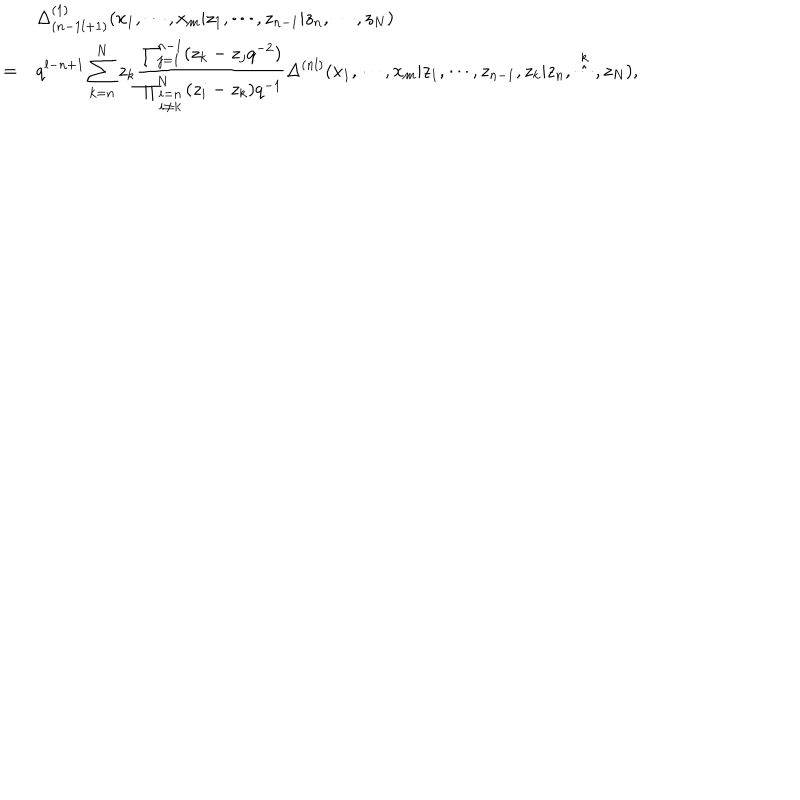 \Delta^{(1)}_{(n-1l+1)}(x_1,\cdots,x_m|z_1,\cdots,z_{n-1}|z_n,\cdots,z_N)
= q^{l-n+1}\sum_{k=n}^{N} z_k \frac{\prod_{j=1}^{n-1}(z_k-z_jq^{-2})}{\prod_{\substack{i=n\\i\neq k}}^{N}(z_i-z_k)q^{-1}} \Delta^{(nl)}(x_1,\cdots,x_m|z_1,\cdots,z_{n-1},z_k|z_n,\overset{k}{\hat{\cdots}},z_N),